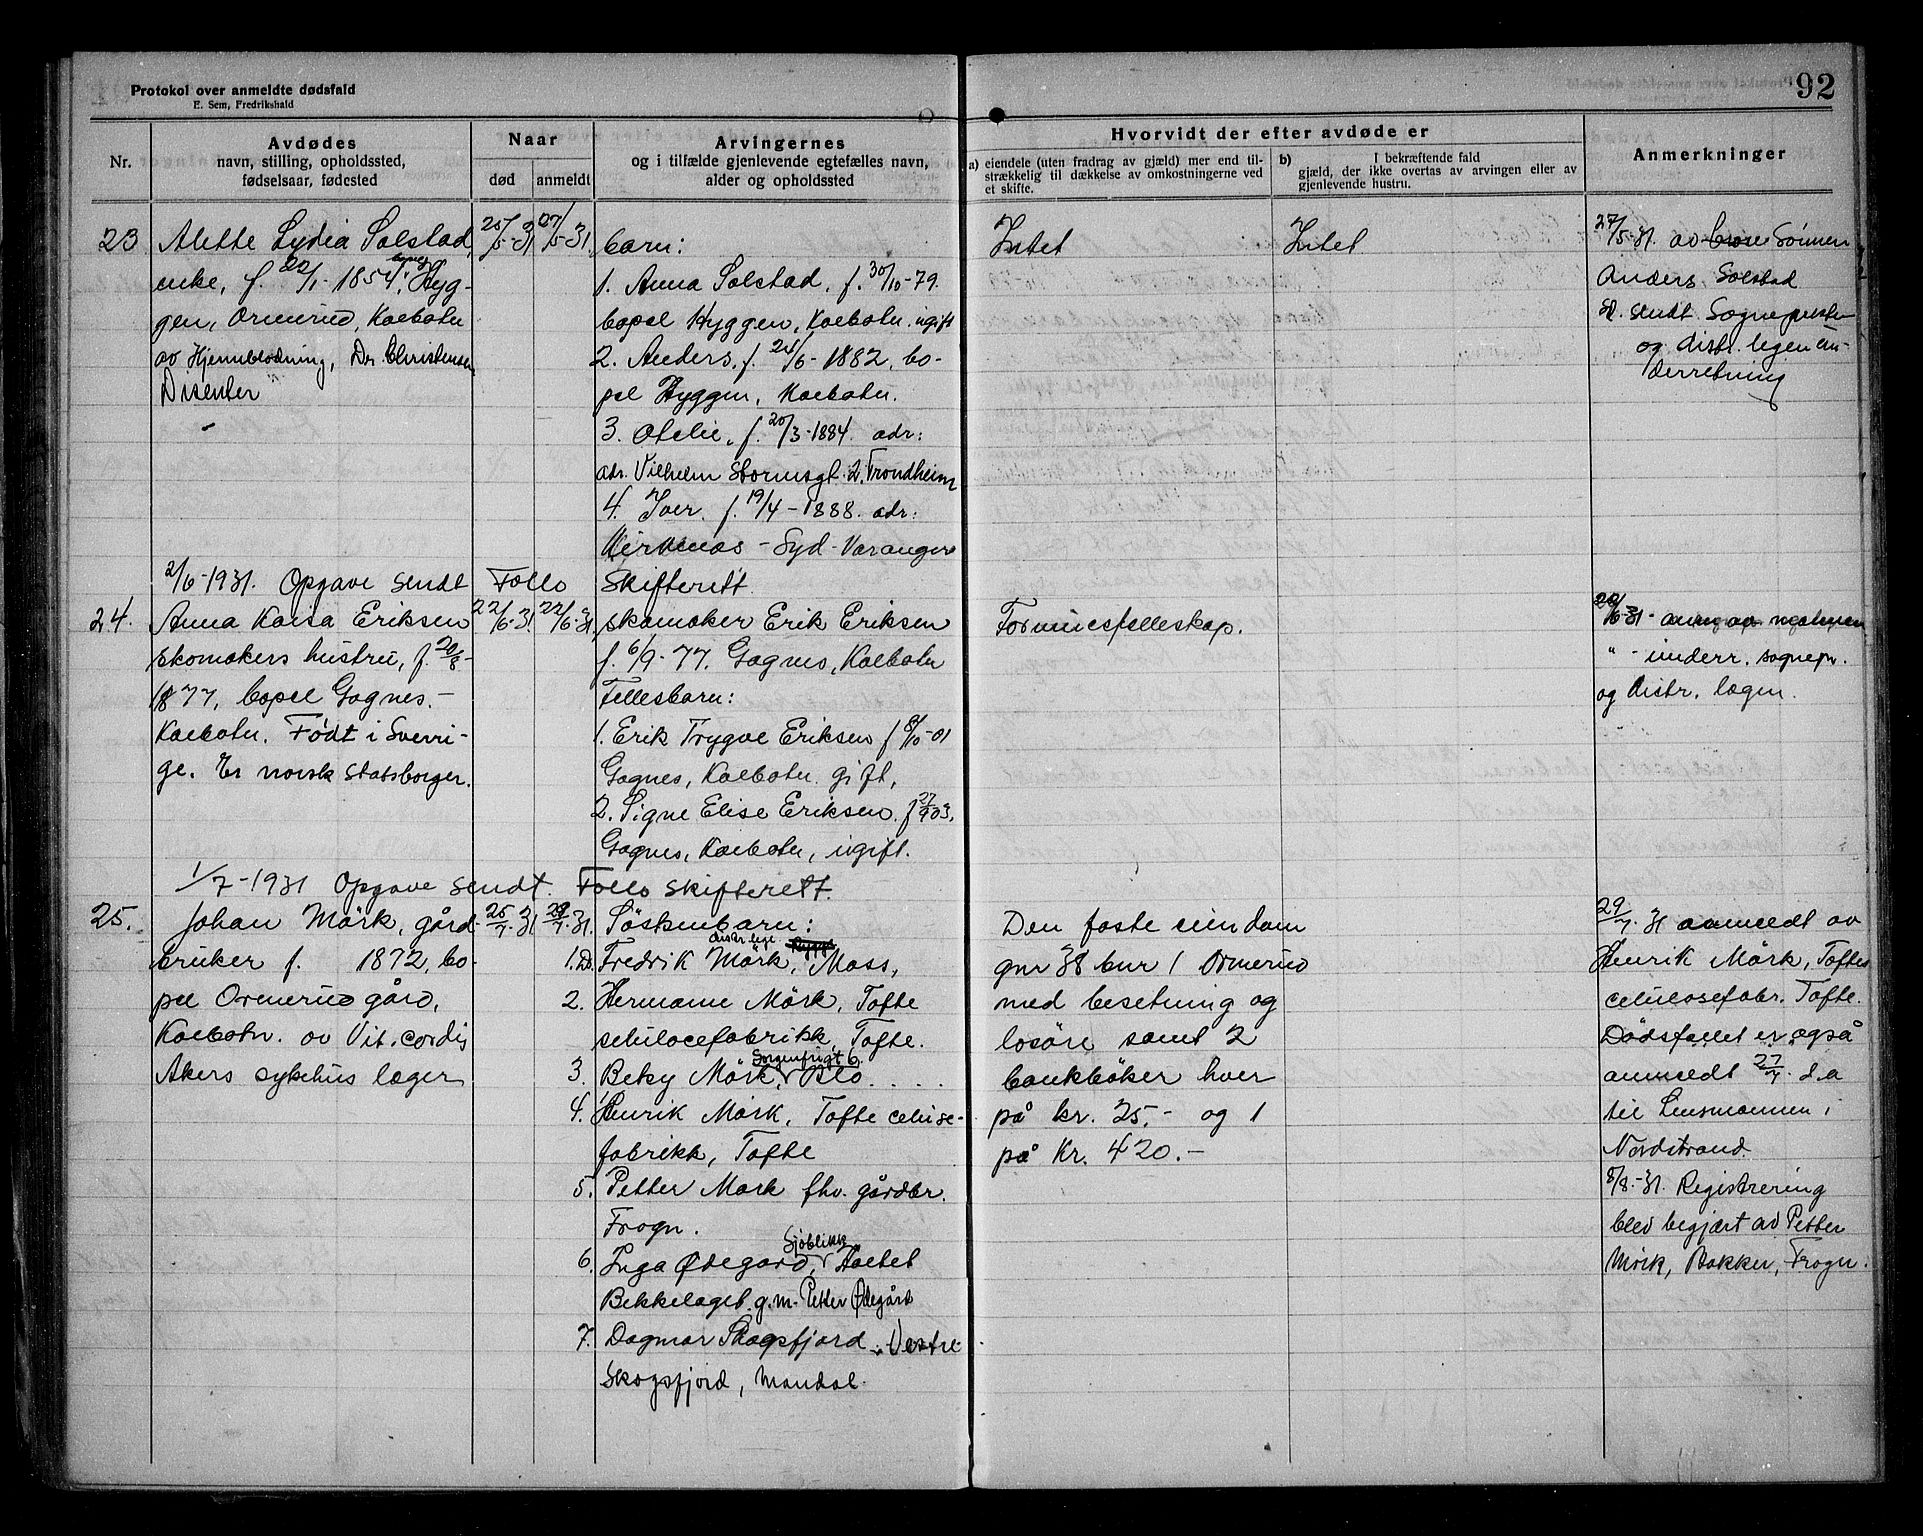 Protokol over anmeldte dødsfald
E. Sem, Fredrikshald
92
Nr.
Avdødes
navn, stilling, opholdssted,
fødselsaar, fødested
Naar
død
anmeldt
Arvingernes
og i tilfælde gjenlevende egtefælles navn,
alder og opholdssted
Hvorvidt der efter avdøde er
a) eiendele (uten fradrag av gjæld) mer end til-
strækkelig til dækkelse av omkostningerne ved
et skifte.
b) I bekræftende fald
gjæld, der ikke overtas av arvingen eller av
gjenlevende hustru.
Anmerkninger
23 Alette Lydia Solstad,
enke, f. 22/1-1854, bopæl Hyg-
gen, Ormerud, Kolbotn
av Hjerneblødning, Dr. Christensen
Disenter
25/5-31
27/5-31
barn:
1. Anna Solstad, f. 30/10-79.
bopel Hyggen, Kolbotn. ugift
2. Anders, f. 24/6-1882, bo-
pel Hyggen, Kolbotn.
3. Otelie, f. 20/3-1884. adr:
adr. Vilhelm Stormsgt. 2. Trondheim
4. Iver. f. 19/4-1888. adr:
Kirkenes - Syd-Varanger
Intet
Intet
27/5-31. av Sönnen
Anders Solstad
S.d. sendt Sogneprester
og distr. legen un-
derretning
2/6-1931. Opgave sendt Follo Skifterett.
24. Anna Kaisa Eriksen
skomakers hustru, f. 20/8-
1877, bopel Gagnes.-
Kolbotn. Født i Sverri-
ge. Er norsk statsborger.
22/6-31
22/6-31
skomaker Erik Eriksen
f. 6/9-77. Gagnes, Kolbotn
Fellesbarn:
1. Erik Trygve Eriksen f 8/10-01
Gagnes, Kolbotn. gift,
2. Signe Elise Eriksen. f 27/9 03,
Gagnes, Kolbotn, ugift.
Formuesfelleskap.
22/6-31-
" - underr. sognepr.
og distr. lægen.
1/7-1931 Opgave sendt. Follo skifterett.
25. Johan Mörk, gård-
bruker f. 1872, bo-
pel Ormerud gård,
Kolbotn. av Vit. cordis
Akers sykehus læger
25/7-31
29/7-31.
Söskenbarn:
1. Dr. Fredrik Mörk, distr. lege Moss,
2. Hermann Mörk, Tofte
celulocefabrikk, Tofte.
3. Betsy Mörk, Sorgenfrigt 6. Oslo....
4. Henrik Mörk, Tofte celuse-
fabrikk, Tofte
5. Petter Mork fhv. gårdbr.
Frogn.
6. Inga Ødegard, Sjøblikk Holtet
Bekkelaget. g.m. Petter Ødegård
7. Dagmar Skogsfjord, Vestre
Skogsfjord, Mandal.
Den faste eiendom
gnr 38 bnr 1 Ormerud
med besetning og
losöre samt 2
bankböker hver
på kr. 25,- og 1
på Kr. 420.-
29/7-31 anmeldt av
Henrik Mörk, Tofte
celulosefabr. Tofte.
Dödsfallet er også
anmeldt 27/7 d.a
til Lensmannen i
Nordstrand.
8/8-31. Registrering
blev begjært av Petter
Mörk, Bakker, Frogn.